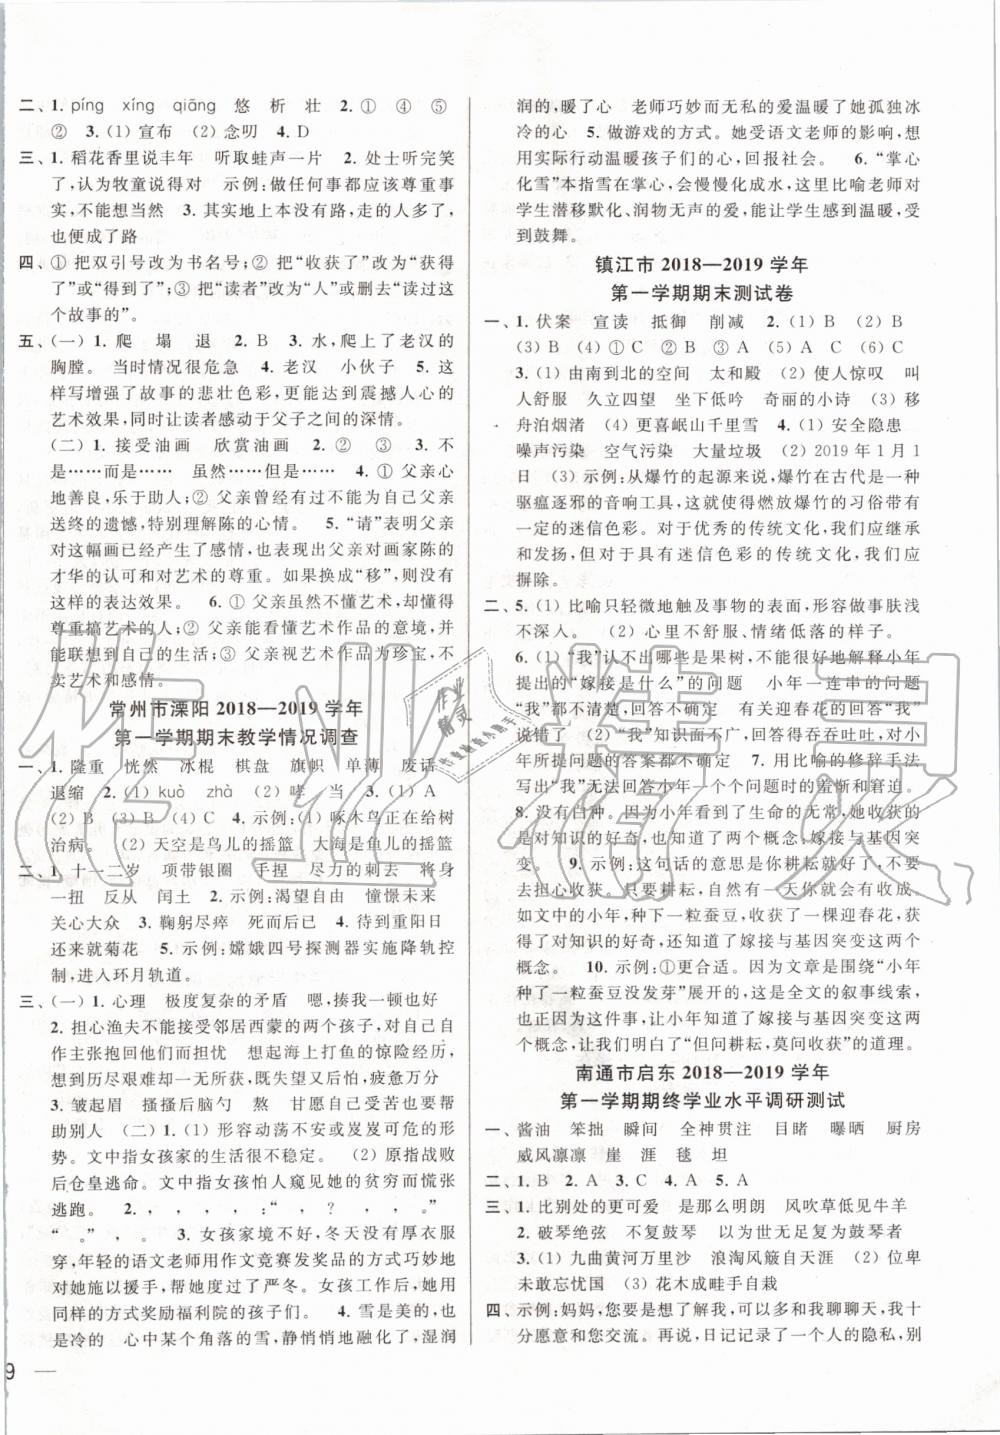 二、1. píng xíng qiāng 悠 析 壮 2. ① ④ ⑤
② 3. (1) 宣布 (2) 念叨 4. D
三、1. 稻花香里说丰年 听取蛙声一片 2. 处士听完笑
了,认为牧童说得对 示例:做任何事都应该尊重事
实,不能想当然 3. 其实地上本没有路,走的人多了,
也便成了路
四、① 把双引号改为书名号;② 把“收获了”改为“获得
了”或“得到了”;③ 把“读者”改为“人”或把“读过这
个故事的”。
五、(一) 1. 爬 塌 退 2. B 3. 水,爬上了老汉的
胸膛。 当时情况很危急 4. 老汉 小伙子 5. 这
样写增强了故事的悲壮色彩,更能达到震撼人心的
艺术效果,同时让读者感动于父子之间的深情。
(二) 1. 接受油画 欣赏油画 2. ② ③ 3. 不
是……而是…… 虽然……但是…… 4. ① 父亲心
地善良,乐于助人。② 父亲曾经有过为自己父亲
送终的遗憾,特别理解陈的心情。 5. “请”表明父亲
对这幅画已经产生了感情,也表现出父亲对画家陈的
才华的认可和对艺术的尊重。如果换成“移”,则没有
这样的表达效果。 6. ① 父亲虽然不懂艺术,却懂得
尊重搞艺术的人;② 父亲能看懂艺术作品的意境,并
能联想到自己的生活;③ 父亲视艺术作品为珍宝,不
卖艺术和感情。
常州市溧阳 2018—2019 学年
第一学期期末教学情况调查
一、1. 隆重 恍然 冰棍 棋盘 旗帜 单薄 废话
退缩 2. (1) kuò zhà (2) 哮 当 3. (1) A
(2) B (3) B (4) C 4. 示例:(1) 啄木鸟正在给树
治病。 (2) 天空是鸟儿的摇篮 大海是鱼儿的摇篮
二、1. 十一二岁 项带银圈 手捏 尽力的刺去 将身
一扭 反从 闰土 2. 示例:渴望自由 憧憬未来
关心大众 3. 鞠躬尽瘁 死而后已 4. 待到重阳日
还来就菊花 5. 示例:嫦娥四号探测器实施降轨控
制,进入环月轨道。
三、(一) 1. 心理 极度复杂的矛盾 嗯,揍我一顿也好
2. 担心渔夫不能接受邻居西蒙的两个孩子,对自己自
作主张抱回他们而担忧 想起海上打鱼的惊险经历,
想到后半生艰难却无能为力,疲惫万分
3. 皱起眉 搔搔后脑勺 甘愿自己受苦,也要帮
助别人 (二) 1. (1) 形容动荡不安或岌岌可危的形
势。文中指女孩家的生活很不稳定。 (2) 战败
后仓皇逃命。文中指女孩怕人窥见她的贫穷而慌张
逃跑。 2. , , , :“ , ? , , 。
” “ , 。” 3. 女孩家境不好,冬天没有厚衣服
穿,年轻的语文老师用作文竞赛发奖品的方式巧妙地
对她施以援手,帮她度过了严冬。女孩工作后,她用
同样的方式奖励福利院的孩子们。 4. 雪是美的,也
是冷的 心中某个角落的雪,静悄悄地融化了,湿润
润的,暖了心 老师巧妙而无私的爱温暖了她孤独冰
冷的心 5. 做游戏的方式。她受语文老师的影响,想
用实际行动温暖孩子们的心,回报社会。 6. “掌心
化雪”本指雪在掌心,会慢慢化成水,这里比喻老师对
学生潜移默化、润物无声的爱,能让学生感到温暖,受
到鼓舞。
镇江市 2018—2019 学年
第一学期期末测试卷
一、1. 伏案 宣读 抵御 削减 2. (1) B (2) B
(3) B (4) ① C ② B ③ A (5) A (6) C
3. (1) 由南到北的空间 太和殿 (2) 使人惊叹 叫
人舒服 久立四望 坐下低吟 奇丽的小诗 (3) 移
舟泊烟渚 (4) 更喜岷山千里雪 4. (1) 安全隐患
噪声污染 空气污染 大量垃圾 (2) 2019 年 1 月 1
日 (3) 示例:从爆竹的起源来说,爆竹在古代是一种
驱瘟逐邪的音响工具,这就使得燃放爆竹的习俗带有
一定的迷信色彩。对于优秀的传统文化,我们应继承
和发扬,但对于具有迷信色彩的传统文化,我们应
摒除。
二、5. (1) 比喻只轻微地触及事物的表面,形容做事肤浅
不深入。 (2) 心里不舒服、情绪低落的样子。
6. (1) “我”认不出哪些是果树,不能很好地解释小年
提出的“嫁接是什么”的问题 小年一连串的问题
“我”都不清楚,回答不确定 有结迎春花的回答“我”
说错了 (2) “我”知识面不广,回答得吞吞吐吐,对小
年所提问题的答案都不确定 7. 用比喻的修辞手法
写出“我”无法回答小年一个个问题时的羞惭和窘迫。
8. 没有白种。小年虽然看到了生命的无常,她收获的
是对知识的好奇,也知道了两个概念:嫁接与基因突
变。 9. 示例:这句话的意思是你耕耘就好了,不要
去担心收获。只要耕耘,自然会有一天你就会有收获。
如文中的小年,种下一粒蚕豆,收获了一棵迎春花,有
了对知识的好奇,还知道了嫁接与基因突变这两个
概念。 10. 示例:①更合适。因为文章是围绕“小年
种了一粒蚕豆没发芽”展开的,这是全文的叙事线索,
也正因为这件事,让小年知道了嫁接与基因突变两个
概念,让我们明白了“但问耕耘,莫问收获”的道理。
南通市启东 2018—2019 学年
第一学期期终学业水平调研测试
一、酱油 笨拙 瞬间 全神贯注 目睹 曝晒 厨房
威风凛凛 崖 涯 毯 坦
二、1. B 2. A 3. A 4. C 5. A
三、1. 比别处的更可爱 是那么明朗 风吹草低见牛羊
2. 破琴绝弦 不复鼓琴 以为世无足复为鼓琴者
3. (1) 九曲黄河万里沙 浪淘风簸自天涯 (2) 位卑
未敢忘忧国 (3) 花木成畦手自栽
四、示例:妈妈,您要是想了解我,可以多和我聊聊天,我十
分愿意和您交流。再说,日记记录了一个人的隐私,别
9 —
作业精灵